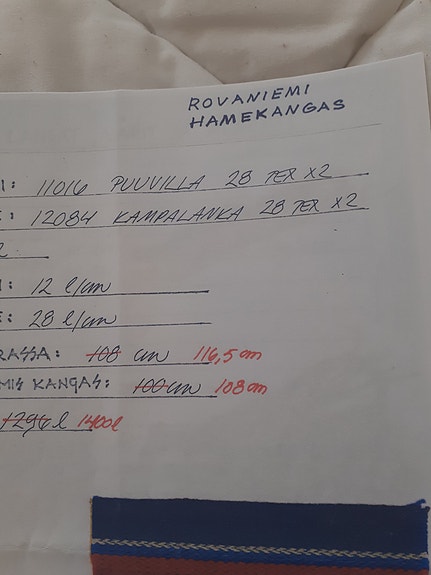 ROVANIEMI
HAMEKANGAS
I: 11016 PUUVILLA 28 TEX X2
: 12084 KAMPALANKA 28 TEX X2
2
: 12 l/cm
E: 28 l/cm
RASSA: 108 cm 116,5 cm
MIS KANGAS: 100 cm 108 cm
1296 l 1400 l